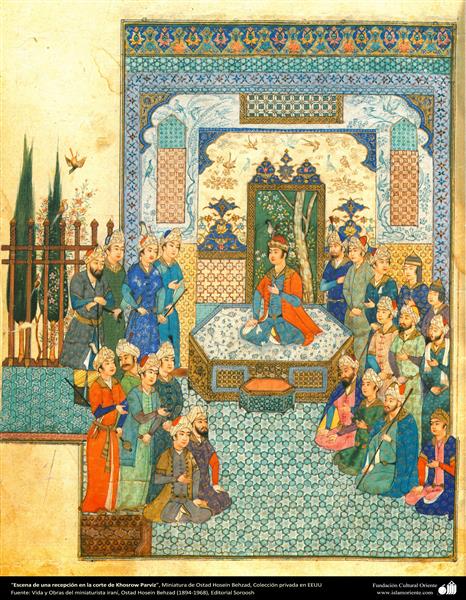 "Escena de una recepción en la corte de Khosrow Parviz", Miniatura de Ostad Hosein Behzad, Colección privada en EEUU
Fuente: Vida y Obras del miniaturista iraní, Ostad Hosein Behzad (1894-1968), Editorial Soroosh
Fundación Cultural Oriente
www.islamoriente.com